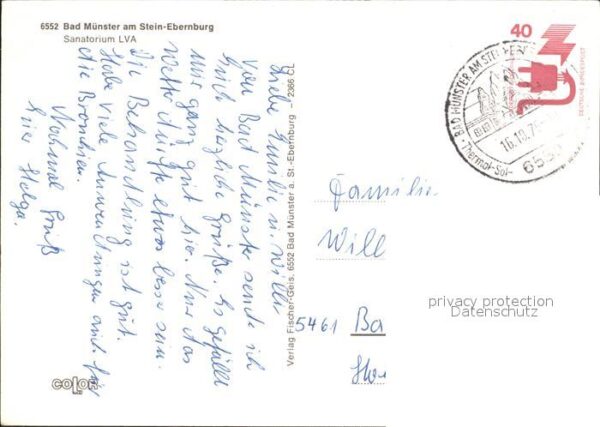 6552 Bad Münster am Stein-Ebernburg
Sanatorium LVA
Liebe Familie u. Willi
Von Bad Münster sende ich
Euch herzliche Grüße. Es gefällt
mir ganz gut hier. Nur das
Wetter dürfte etwas besser sein.
Die Behandlung ist gut.
Habe viele Anwendungen auch für
die Bronchien.
Nochmal Gruß
Helga.
Verlag Fischer-Geis, 6552 Bad Münster a. St.-Ebernburg 2366 CL
color
40
DEUTSCHE BUNDESPOST
BAD MÜNSTER AM STEIN
16.10.7
Thermal-Sol-
Familie
Will
5461 Ba
privacy protection
Datenschutz